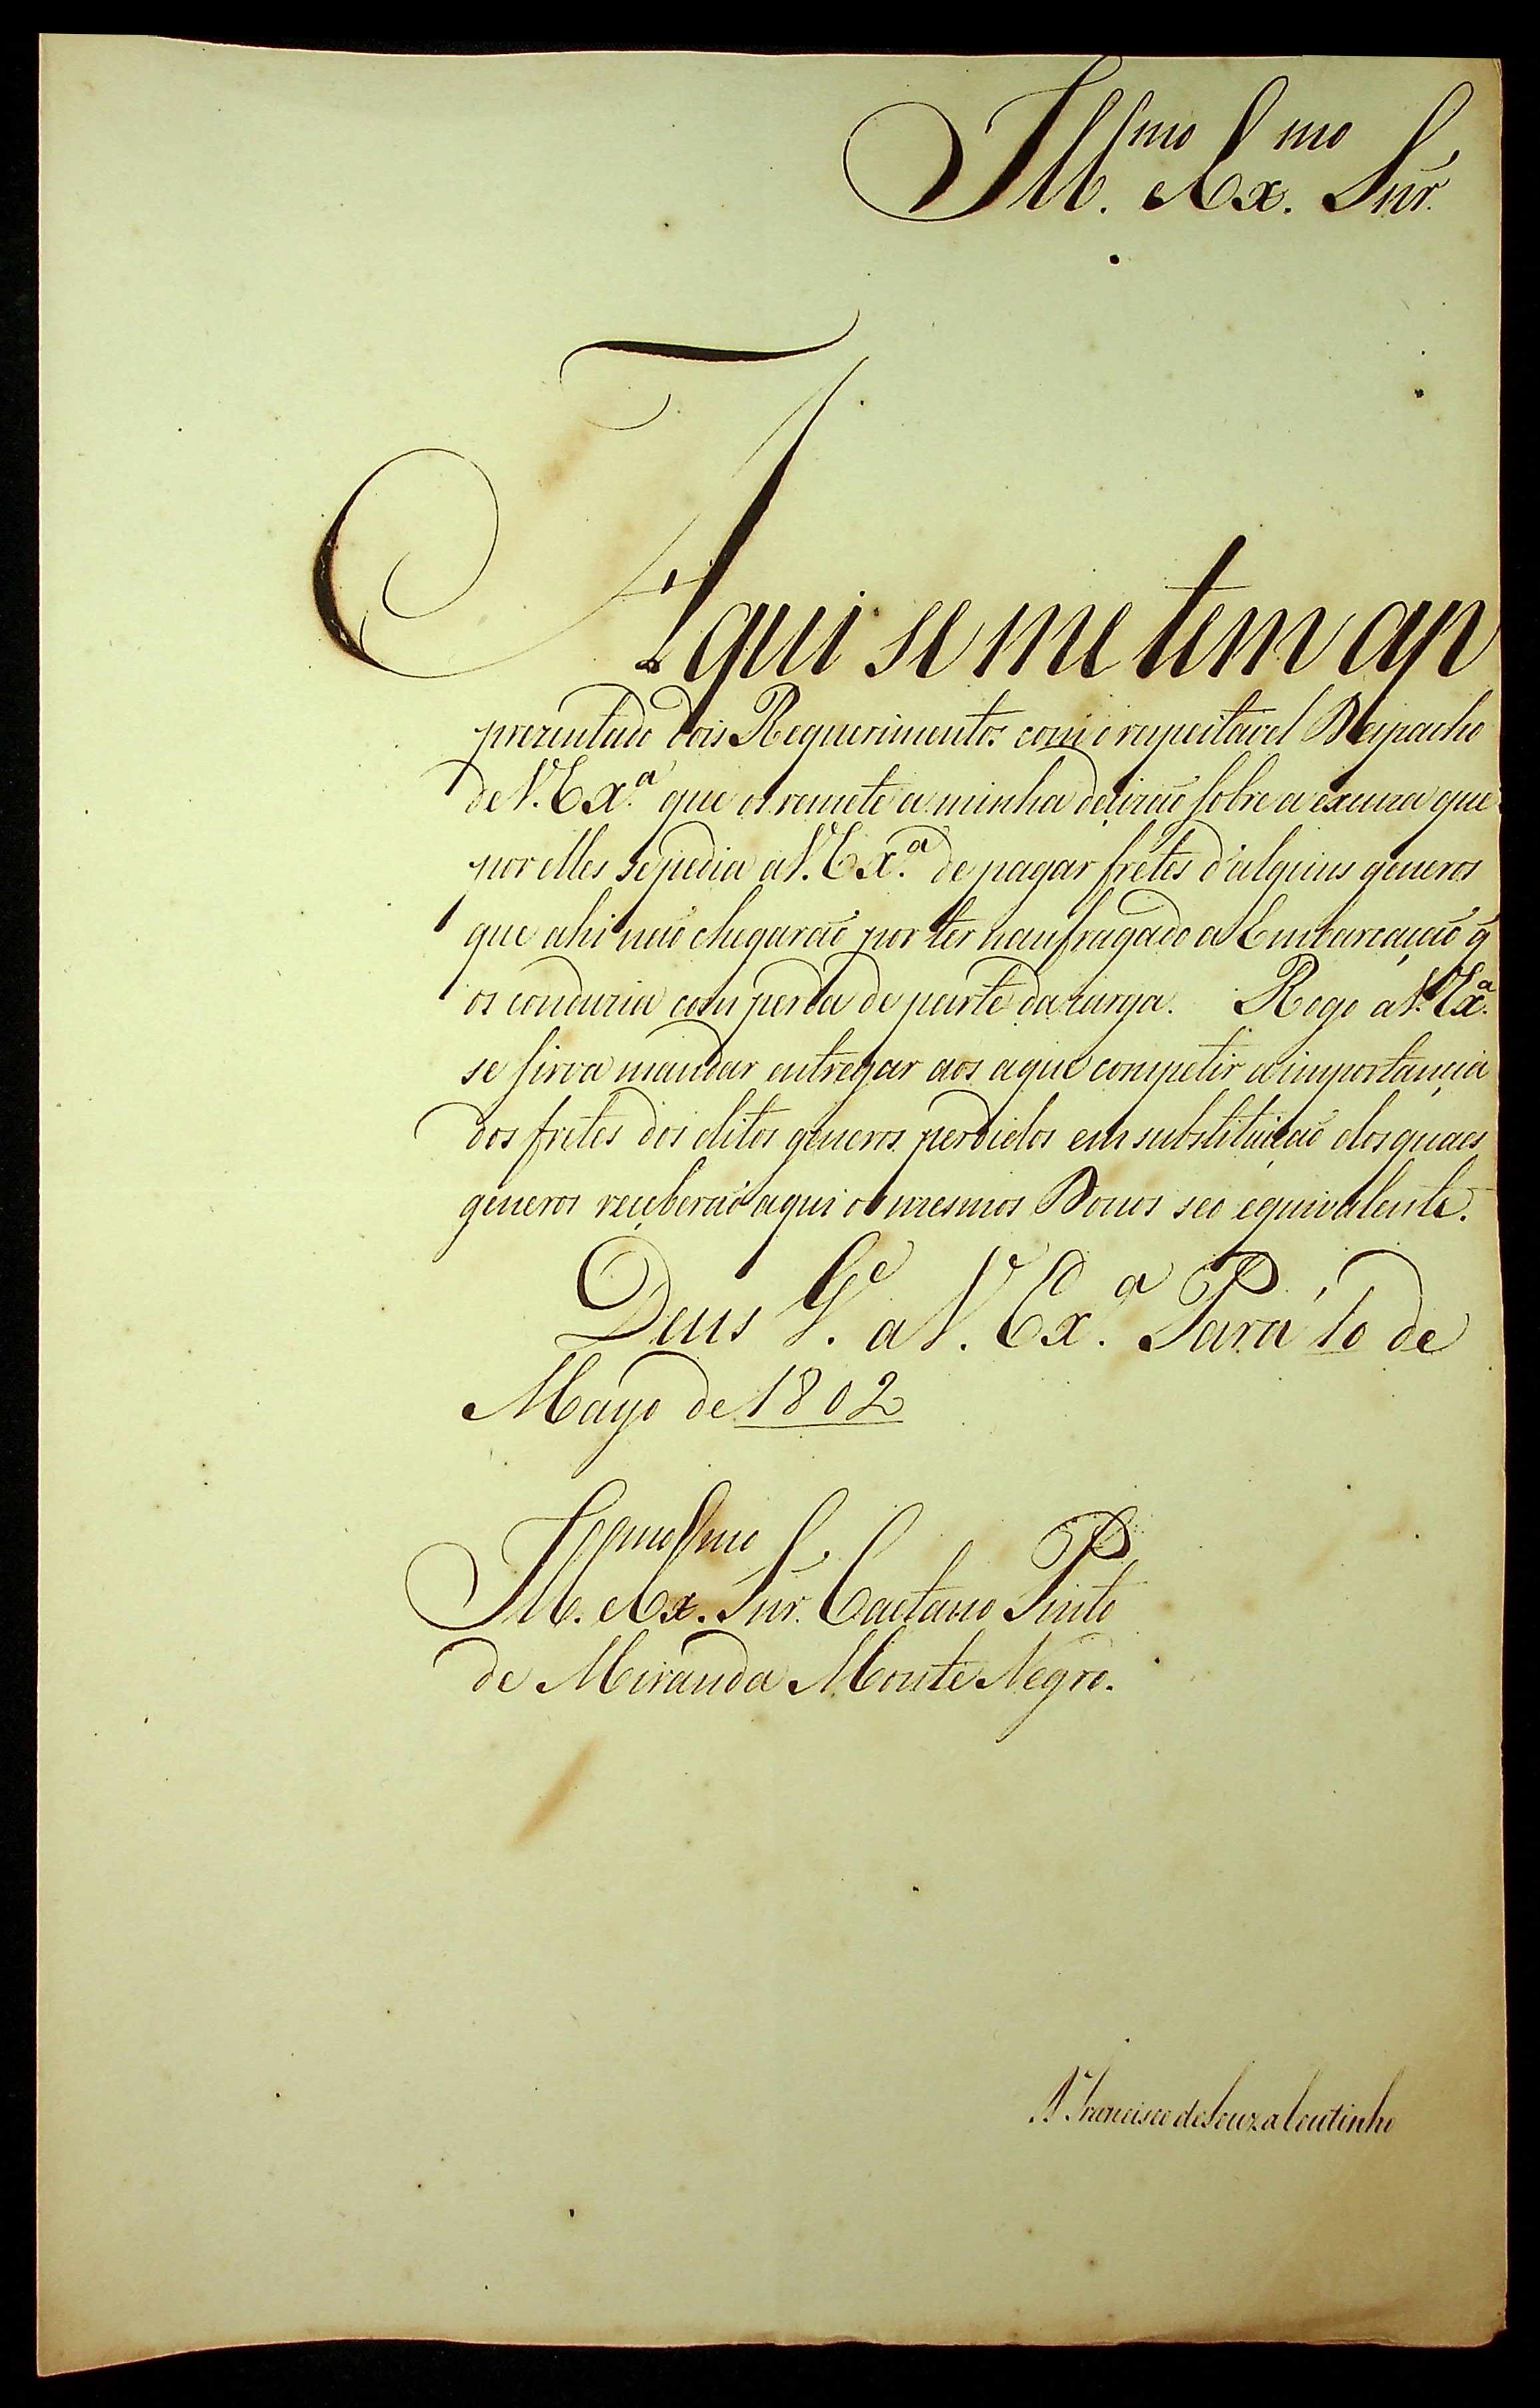 Ill.mo Ex.mo Snr.
Aqui se me tem ap
prezentado dois Requerimentos com o respeitavel Despacho
de V. Ex.a que os remete a minha decizaõ sobre a excuza que
por elles se pedia a V. Ex.a de pagar fretes d'alguns generos
que ahi naõ chegaraõ por ter naufragado a Embarcaçaõ q̃
os conduzia com perda de parte da carga. Rogo a V. Ex.a
se sirva mandar entregar aos a que competir a importancia
dos fretes dos ditos generos perdidos em substituiçaõ dos quaes
generos receberaõ aqui os mesmos Donos seo equivalente.
Deus G.e a V. Ex.a Pará 10 de
Mayo de 1802
Ill.mo Ex.mo Snr. Caetano Pinto
de Miranda Monte Negro.
D. Francisco de Souza Coutinho